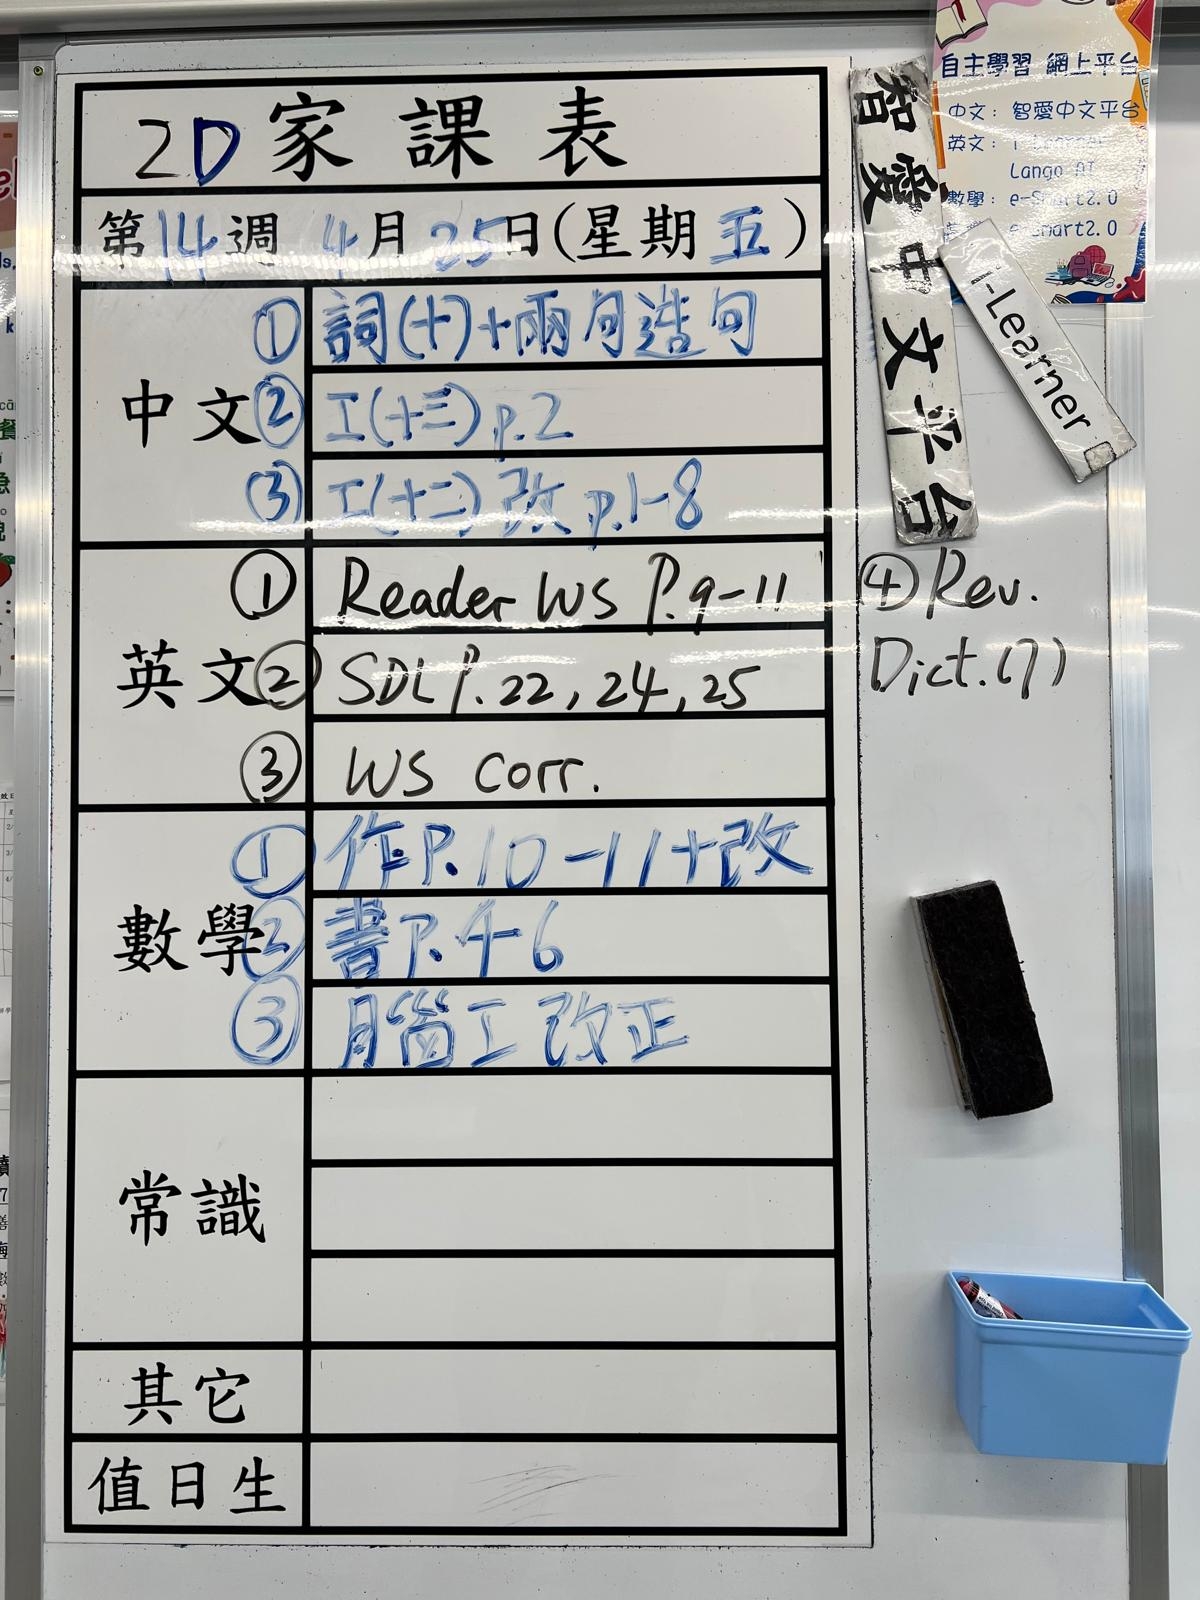 2D 家課表
第14週 4月25日(星期五)
中文
① 詞(十)+兩句造句
② 工(十三) p.2
③ 工(十二) 改 p.1-8
英文
① Reader WS P.9-11
② SDL P.22, 24, 25
③ WS corr.
④ Rev.
Dict.(7)
數學
① 作P.10-11+改
② 書P.4-6
③ 腦工改正
常識
其它
值日生
智愛中文平台
i-Learner
自主學習 網上平台
中文: 智愛中文平台
英文: i-Learner
Lango AI
數學: e-Smart2.0
e-Smart2.0